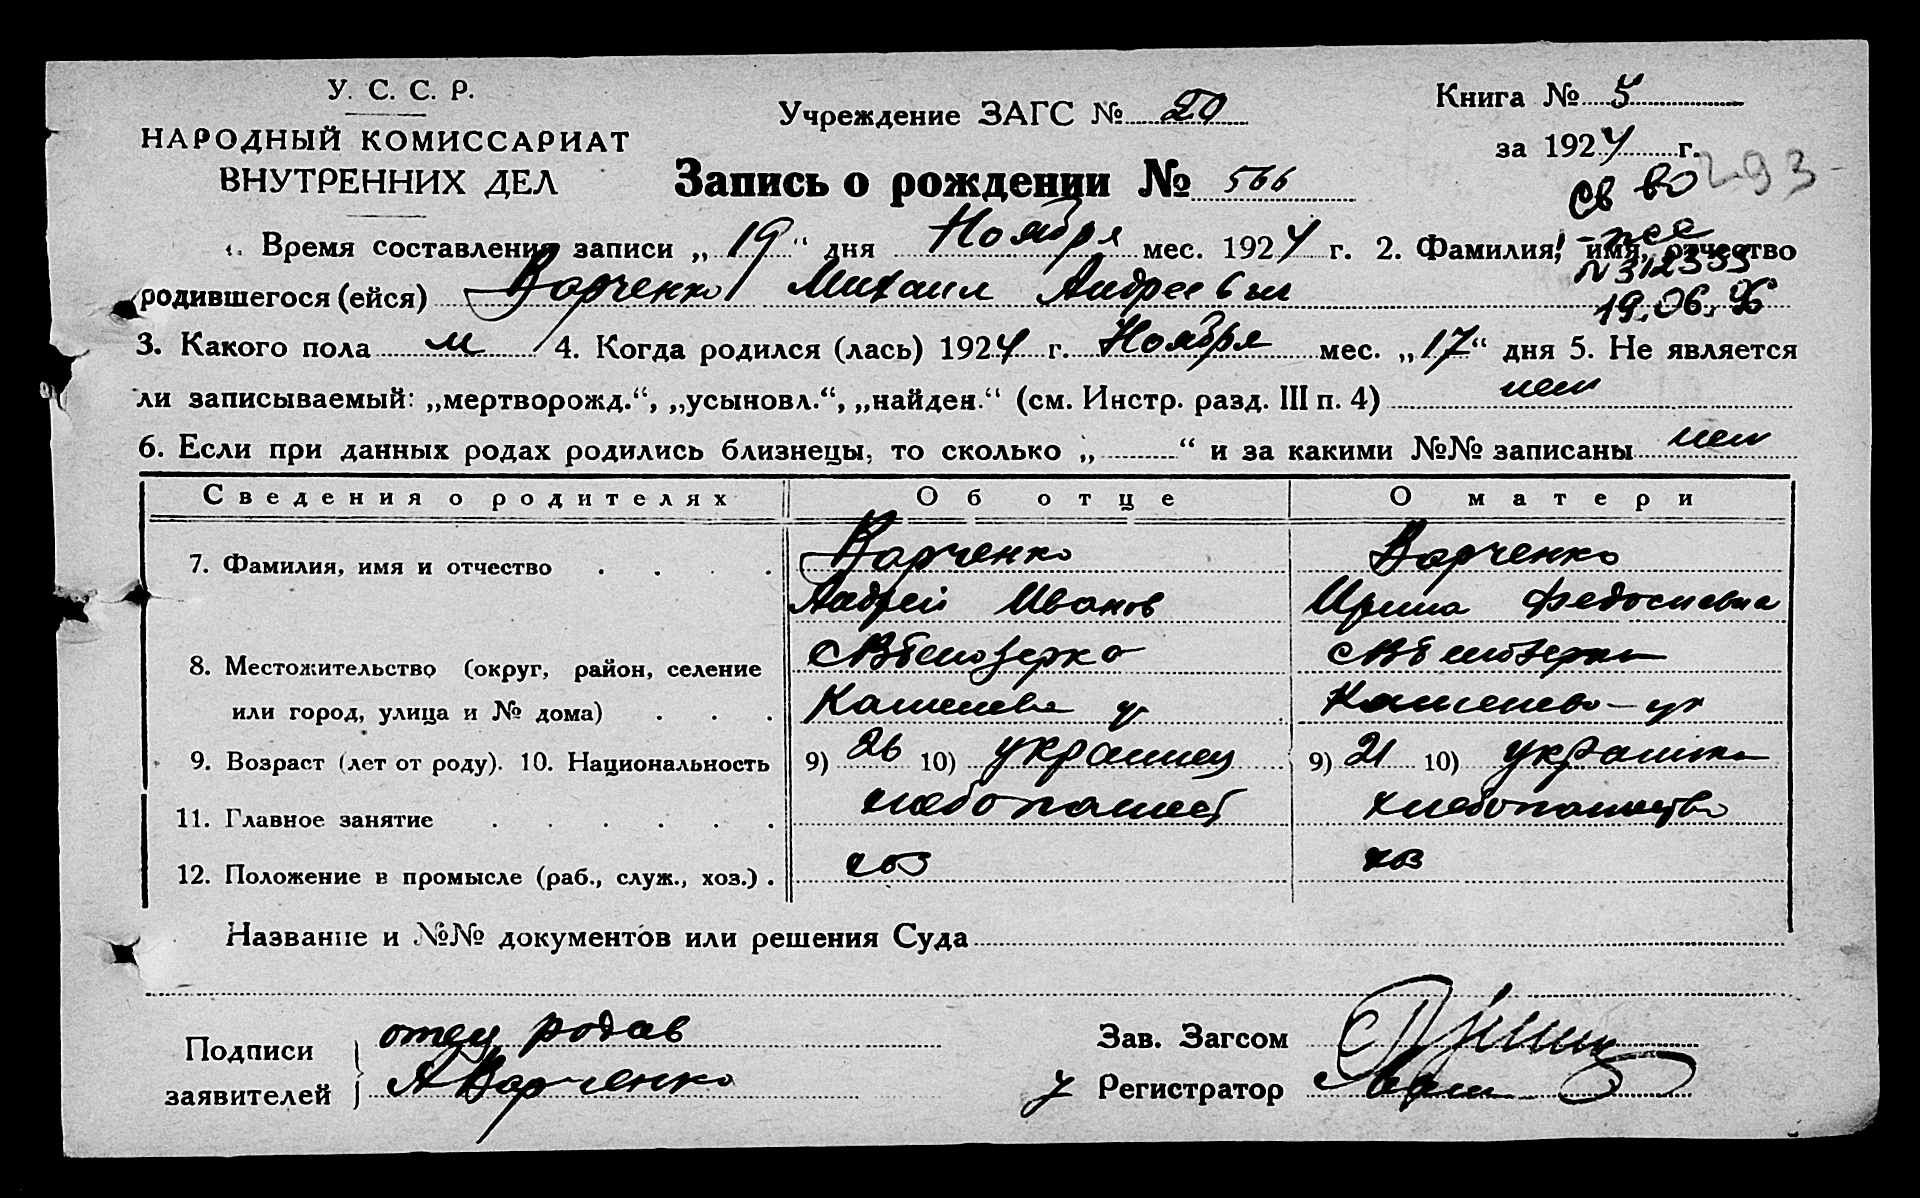 У. С. С. Р.
НАРОДНЫЙ КОМИССАРИАТ
ВНУТРЕННИХ ДЕЛ
Учреждение ЗАГС № 20
Книга № 5
за 1924 г.
293
Запись о рождении № 566
св во
N 312333
19.06.96
1. Время составления записи „19“ дня Ноября мес. 1924 г. 2. Фамилия, имя, отчество
родившегося (ейся) Варченко Михаил Андреевич
3. Какого пола м 4. Когда родился (лась) 1924 г. Ноября мес. „17“ дня 5. Не является
ли записываемый: „мертворожд.“, „усыновл.“, „найден.“ (см. Инстр. разд. III п. 4) нет
6. Если при данных родах родились близнецы, то сколько „ “ и за какими №№ записаны нет
Сведения о родителях Об отце О матери
7. Фамилия, имя и отчество Варченко Варченко
Андрей Иванов Ирина Федосиевна
8. Местожительство (округ, район, селение
или город, улица и № дома)
9. Возраст (лет от роду). 10. Национальность 9) 26 10) украинец 9) 21 10) украинка
11. Главное занятие хлебопашеств хлебопашество
12. Положение в промысле (раб., служ., хоз.) хоз хоз
Название и №№ документов или решения Суда
Подписи заявителей
отец
А Варченко
Зав. Загсом
Регистратор